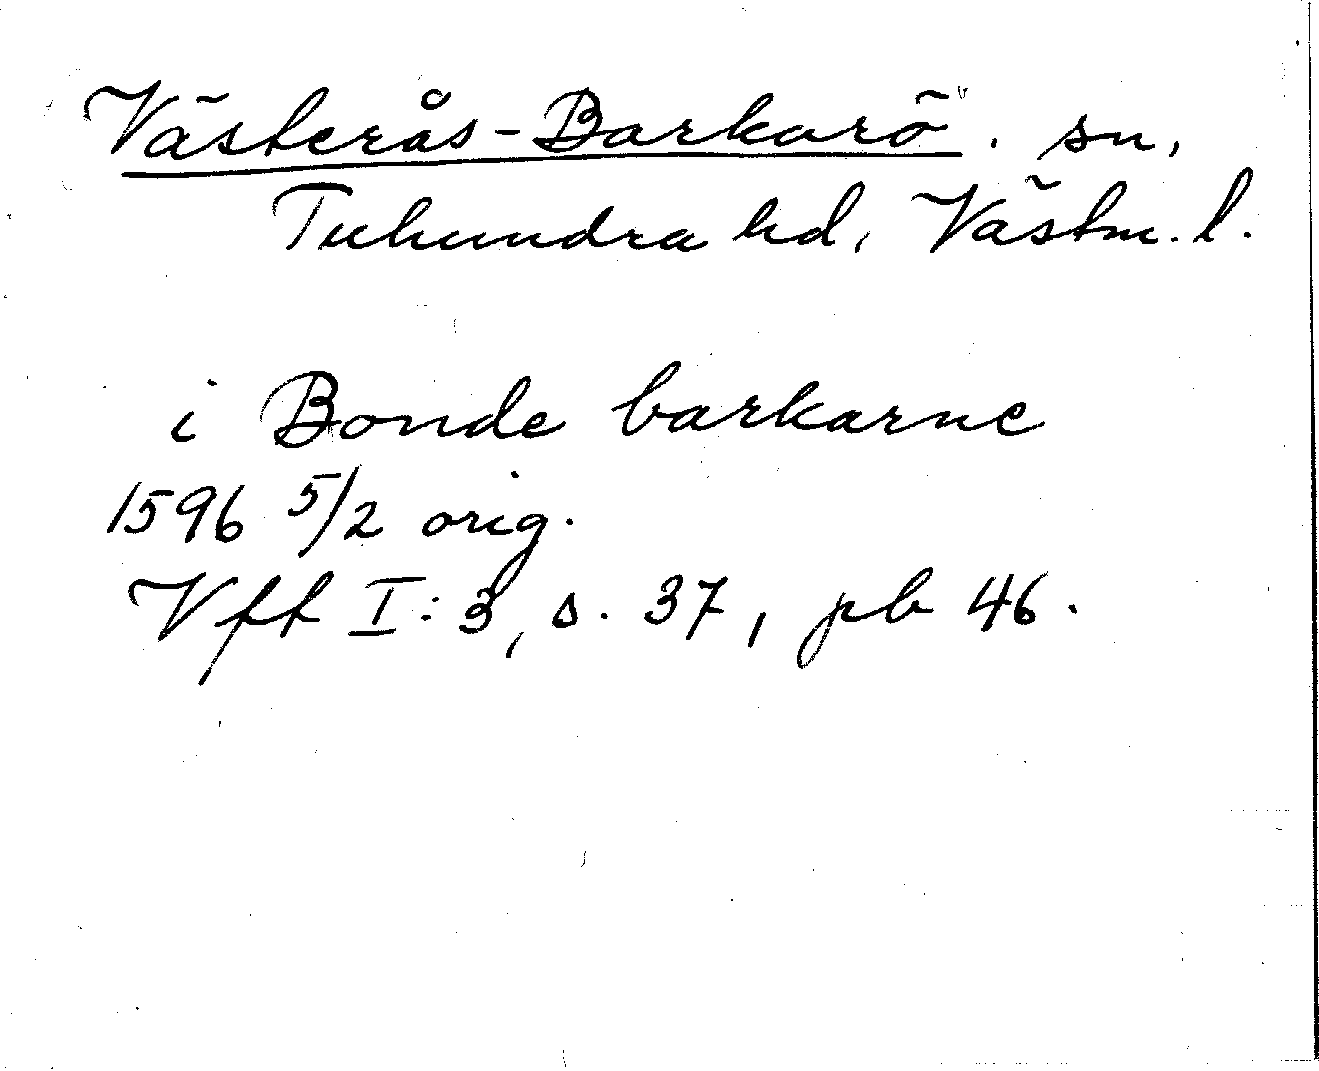 Västerås-Barkarö. sn,
Tuhundra hd, Västm. l.
i Bonde barkarne
1596 5/2 orig.
Vft I:3, s. 37, pb 46.